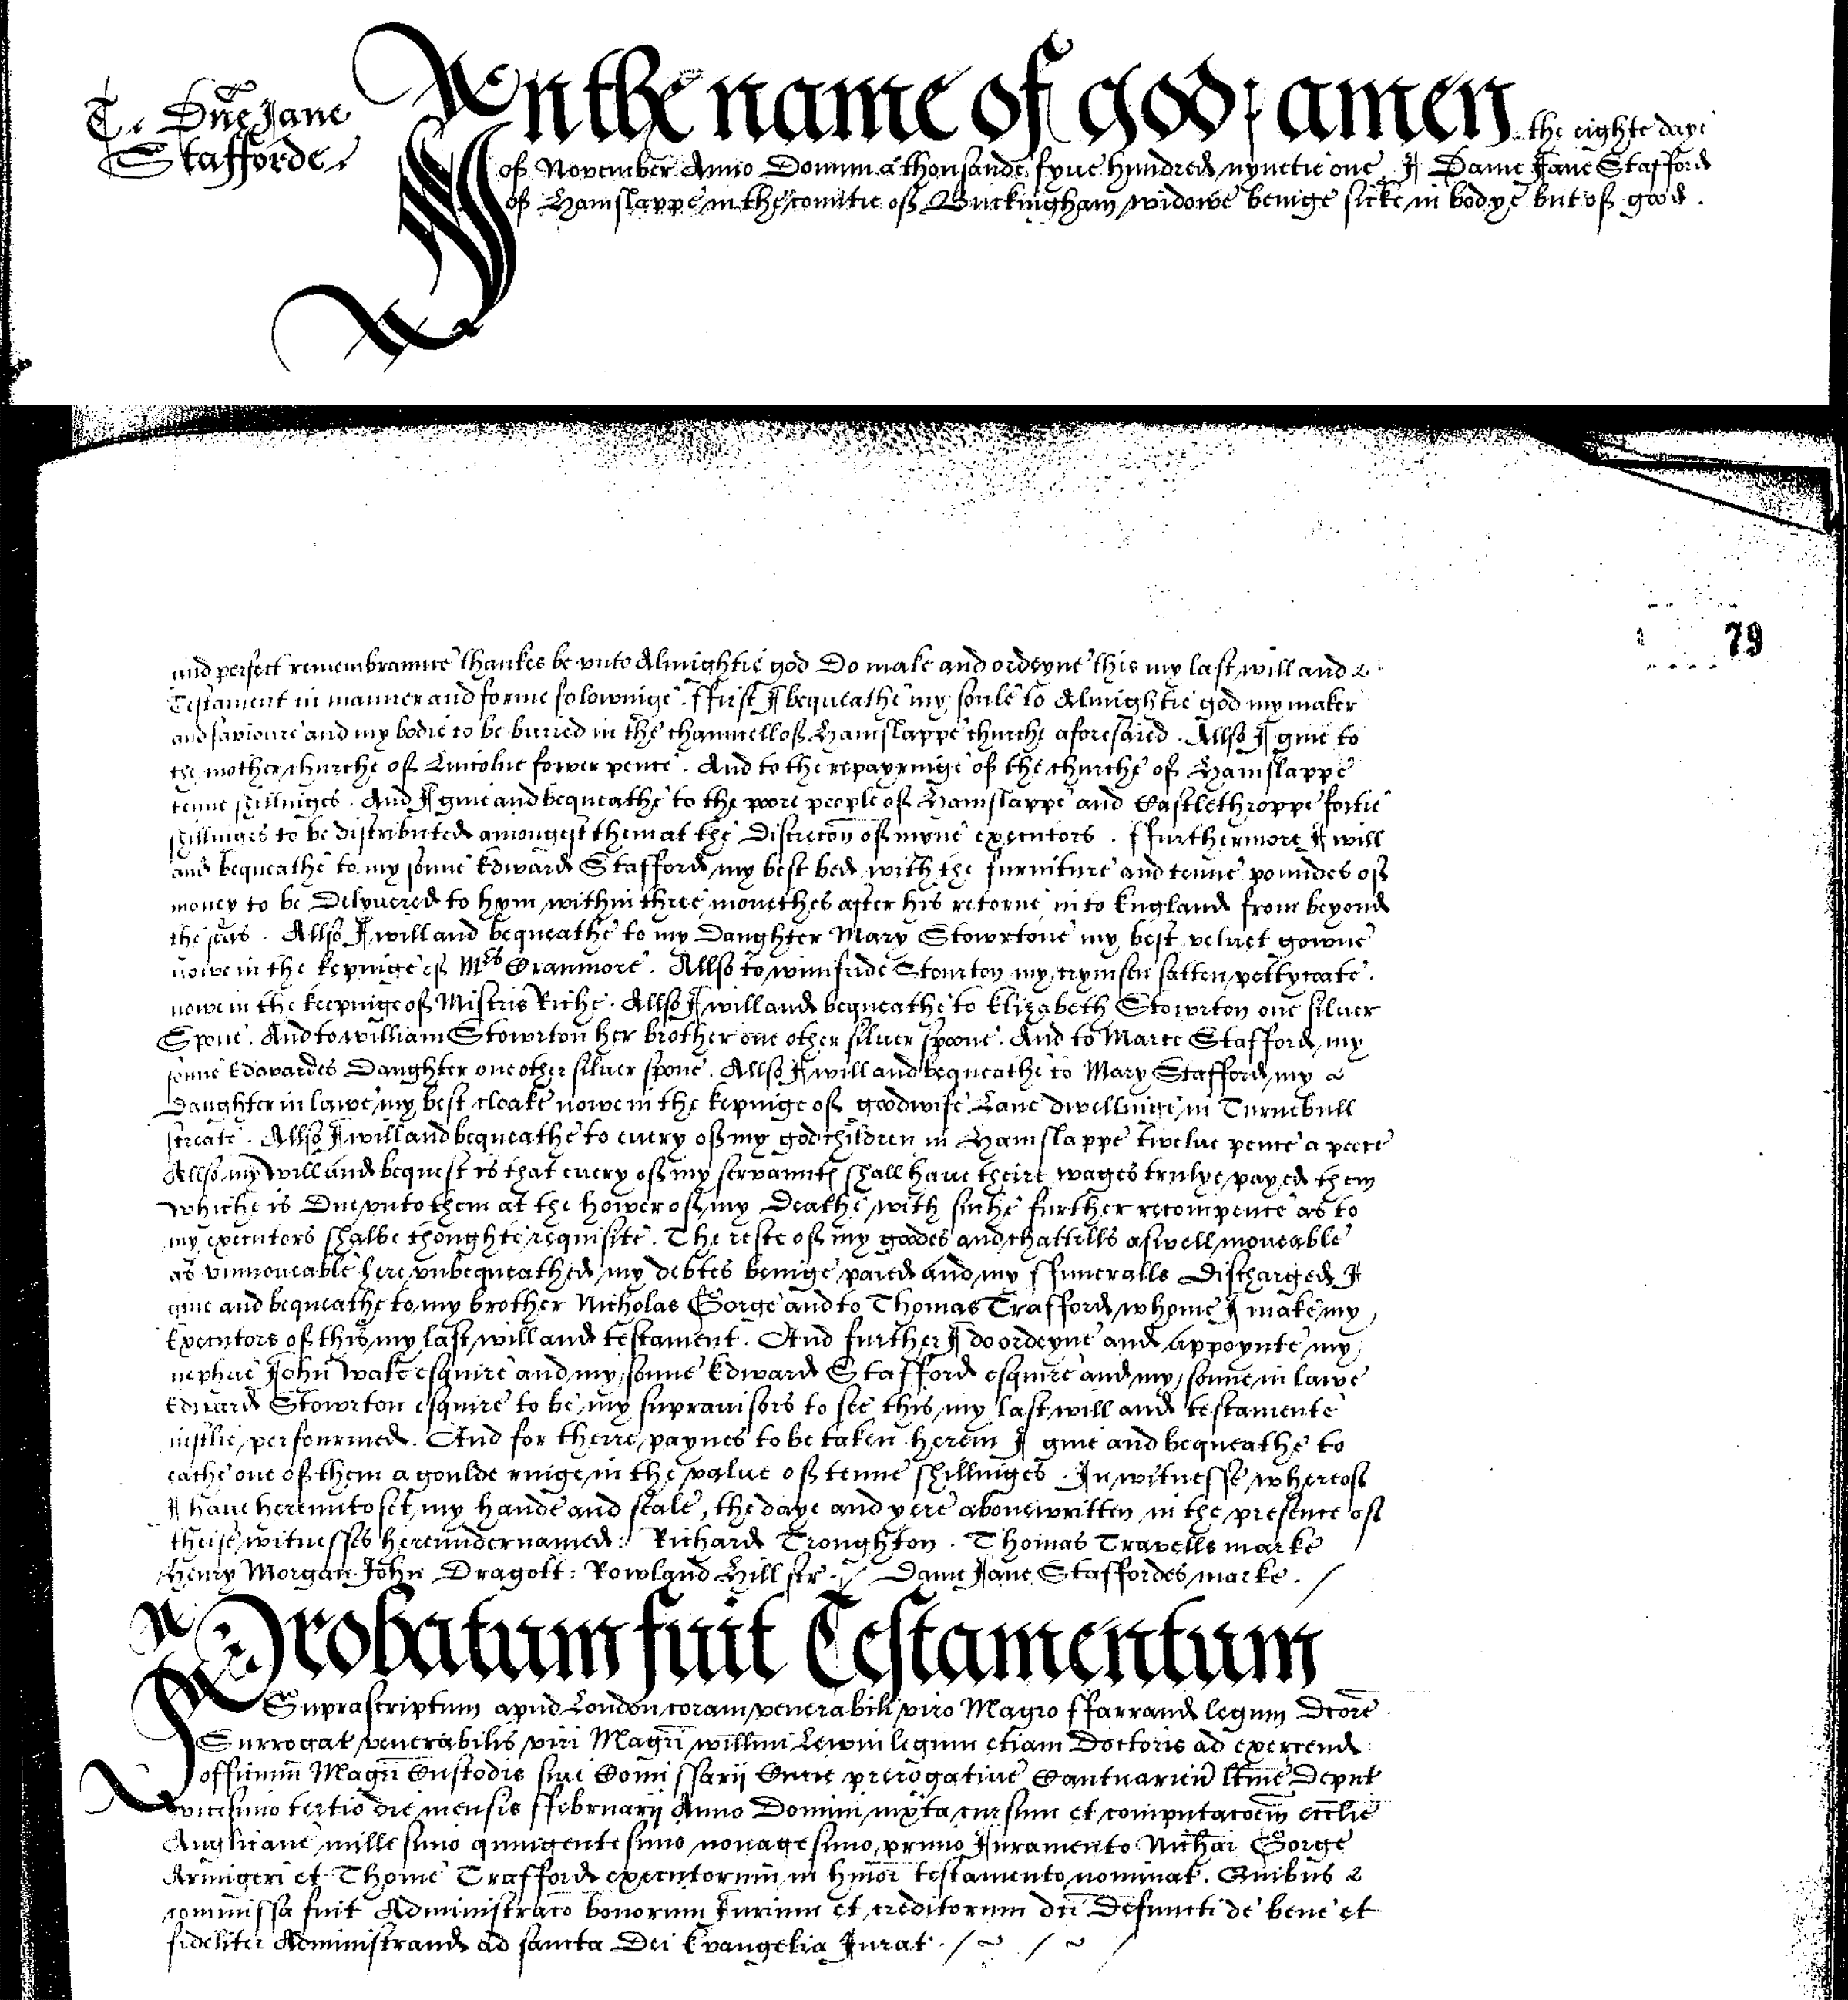 T. Dne Jane
Stafforde
In the name of god amen the eighte daye
of November Anno Domini a thousande fyue hundred nynetie one I Dame Jane Stafford
of Hamslappe in the comitie of Buckingham widowe beinge sicke in bodye but of good
79
and perfect remembraunce thankes be vnto Almightie god Do make and ordeyne this my last will and
Testament in manner and forme folowinge. ffirst I bequeathe my soule to Almightie god my maker
and savioure and my bodie to be buried in the channcell of Hamslappe churche aforesaied. Allso I giue to
the mother churche of Lincolne fower pence. And to the repayringe of the churche of Hamslappe
tenne shillinges. And I giue and bequeathe to the poore people of Hamslappe and Castlethroppe fortie
shillinges to be distributed amongest them at the Discrecon of myne executors. ffurthermore I will
and bequeathe to my sonne Edward Stafford my best bed with the furniture and tenne poundes of
money to be Delyuered to hym within three monethes after his retorne into England from beyond
the seas. Allso I will and bequeathe to my Daughter Mary Stowrtone my best velvet gowne
nowe in the kepinge of Mrs Cranmore. Allso to winifride Stourton my crymsen satten pettycoate.
nowe in the keepinge of Mistris Riche. Allso I will and bequeathe to Elizabeth Stowrton one siluer
Spone. And to william Stowrton her brother one other siluer spoone. And to Marie Stafford my
sonne Edwardes Daughter one other siluer spone. Allso I will and bequeathe to Mary Stafford my
Daughter in lawe my best cloake nowe in the kepinge of goodwife Lane dwellinge in Turnebull
streate. Allso I will and bequeathe to euery of my godchildren in Hamslappe twelue pence a peece
Allso my will and bequest is that euery of my servauntes shall haue theire wages trulye payed them
whiche is Due vnto them at the hower of my Deathe with suche further recompence as to
my executors shalbe thoughte requisite. The reste of my goodes and chattells aswell moueable
as vnmoueable here vnbequeathed my debtes beinge paied and my ffuneralls Discharged I
giue and bequeathe to my brother Nicholas Gorge and to Thomas Trafford whome I make my
Executors of this my last will and testament. And further I do ordeyne and appoynte my
nephue John Wake esquire and my sonne Edward Stafford esquire and my sonne in lawe
Edward Stowrton esquire to be my supravisors to see this my last will and testamente
iustlie perfourmed. And for theire paynes to be taken herein I giue and bequeathe to
eache one of them a goulde ringe in the value of tenne shillinges. In witnesse whereof
I haue hereunto set my hande and seale, the daye and yere aboue written in the presence of
theise witnesses hereundernamed: Richard Troughton. Thomas Travells marke
Henry Morgan John Dragott: Rowland Hill scr. Dame Jane Staffordes marke.
Probatum fuit Testamentum
Suprascriptum apud London coram venerabili viro Magro ffarrand legum Dcore
Surrogat venerabilis viri Magri willimi Lewin legum etiam Doctoris ad exercend
officium Magri Custodis sive Comissarij Curie prerogative Cantuarien ltime Deput
vicesimo tertio die mensis ffebruarij Anno Domini iuxta cursum et computacoem ecclie
Anglicane millesimo quingentesimo nonagesimo primo Juramento Nichai Gorge
Armigeri et Thome Trafford executorum in hmoi testamento nominat. Quibus
commissa fuit Administraco bonorum Jurium et creditorum dci Defuncti de bene et
fideliter Administrand ad sancta Dei Evangelia Jurat.